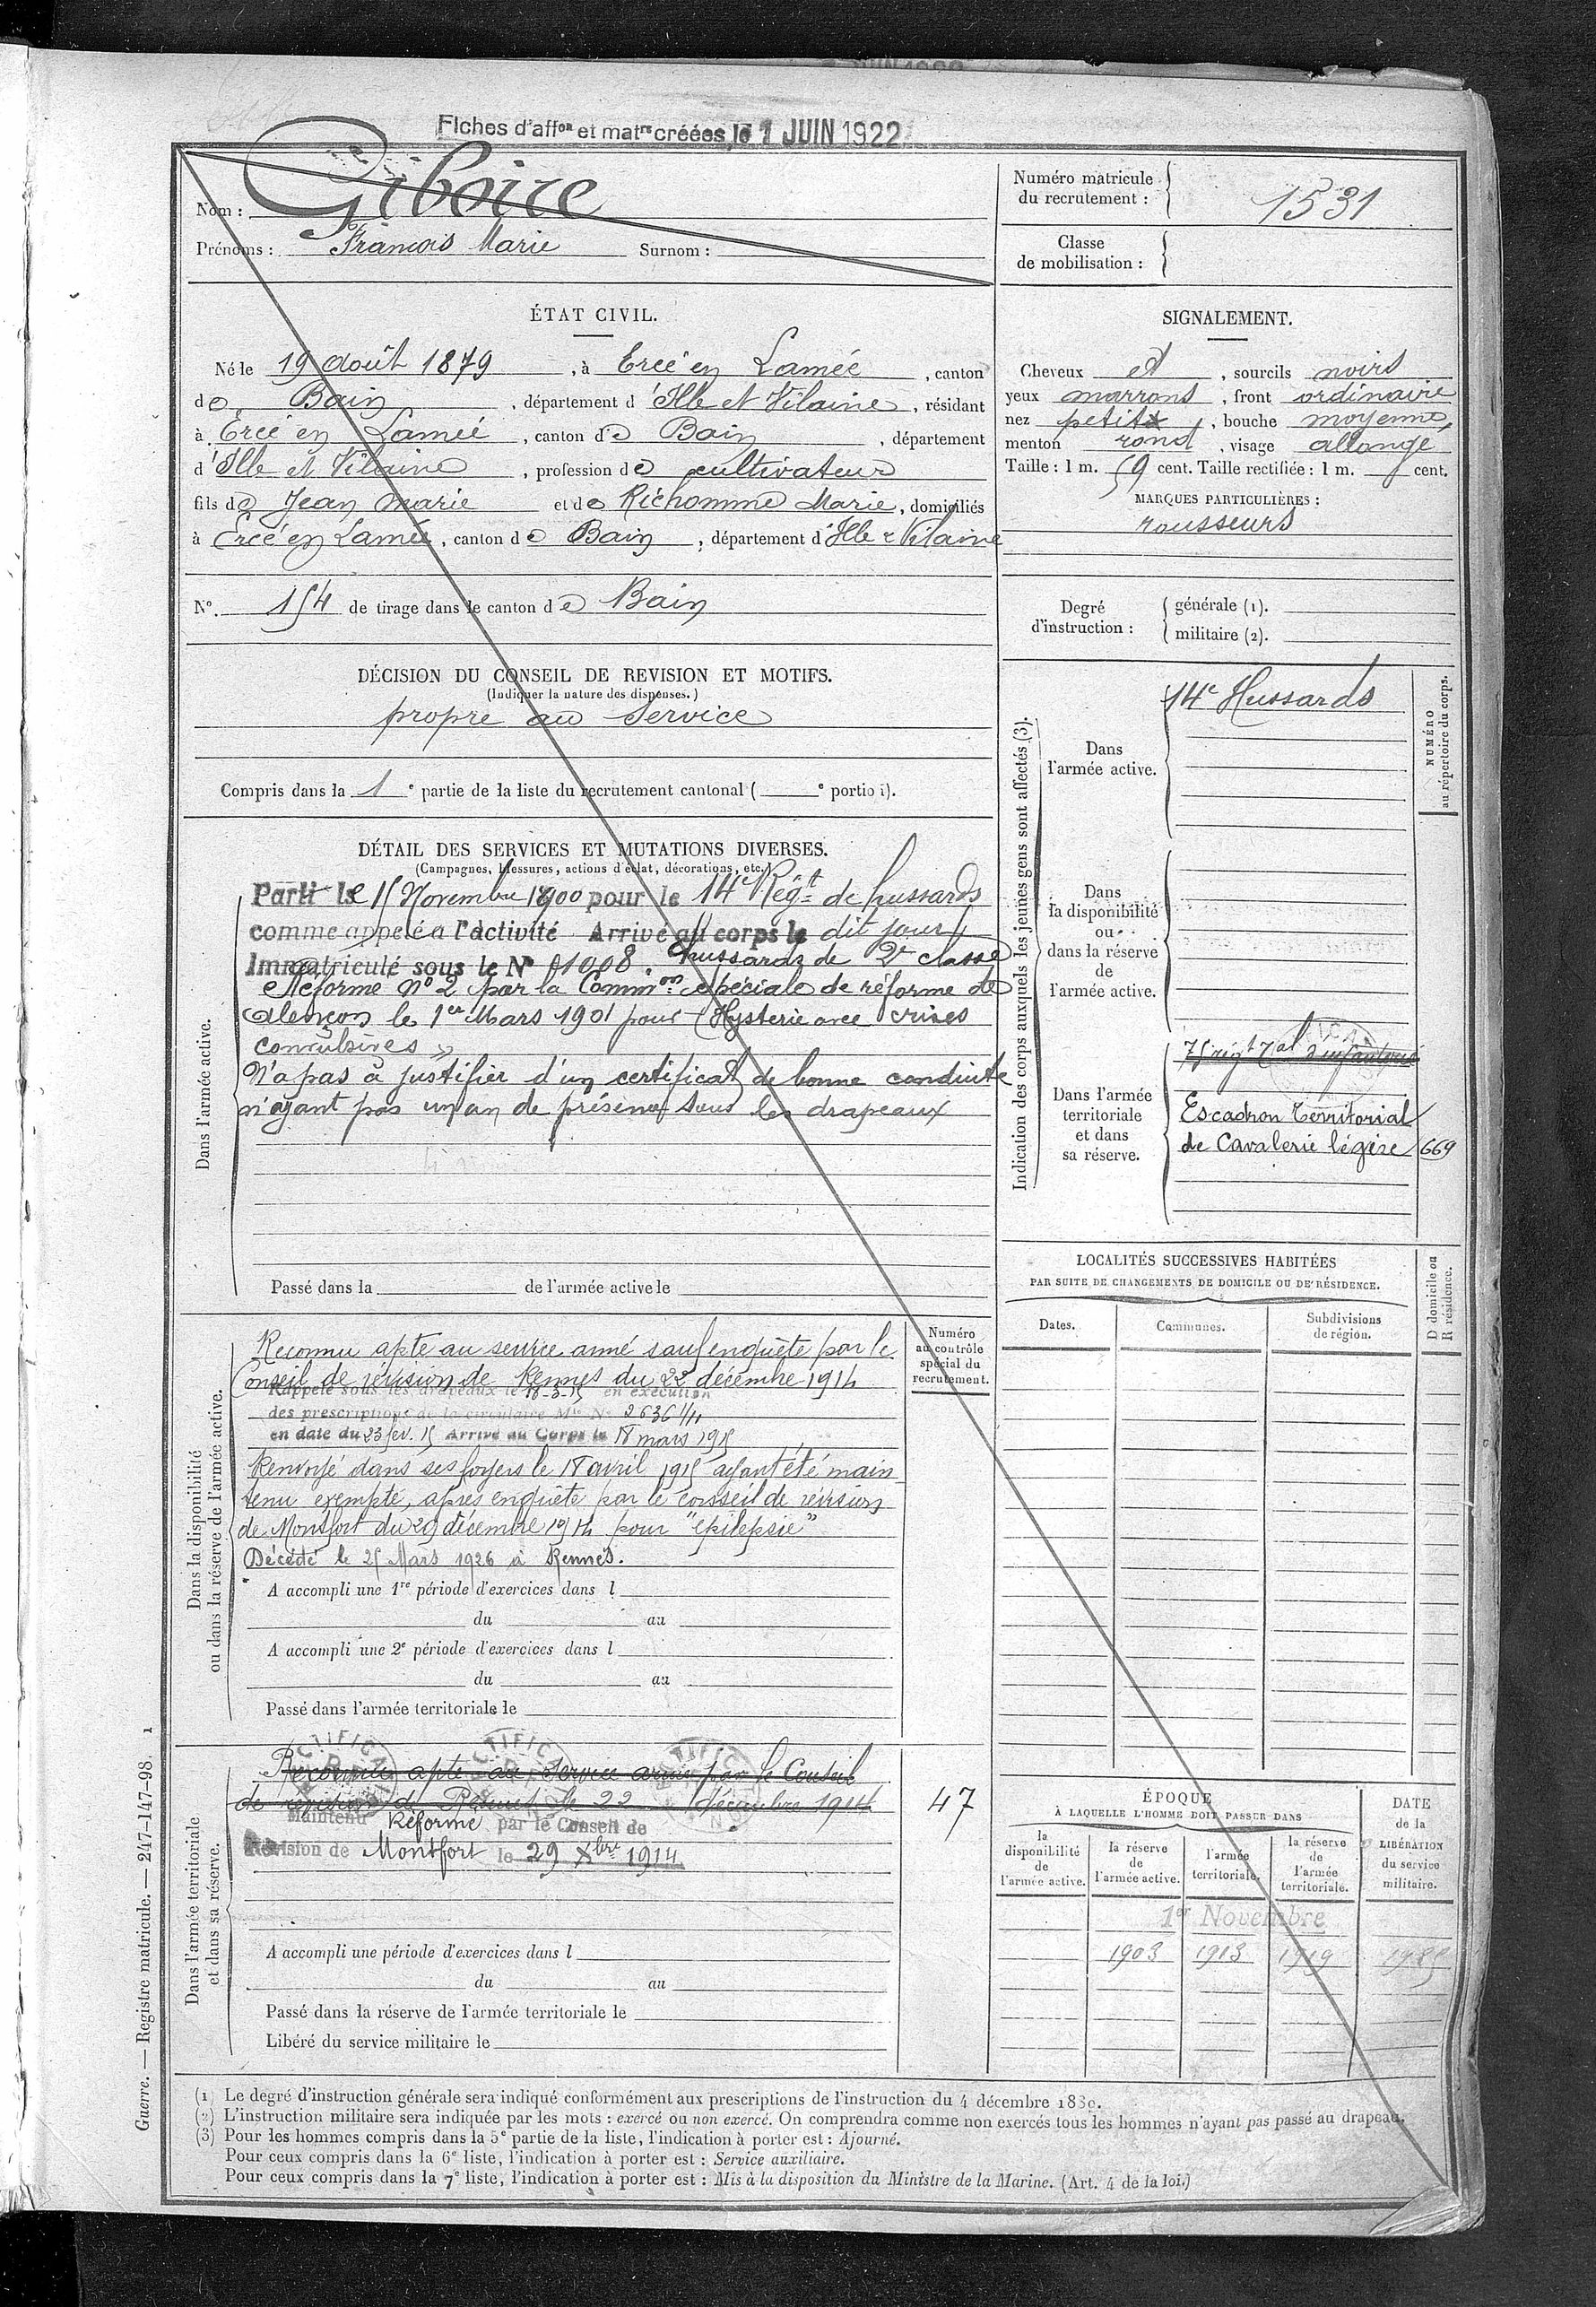 Fiches d'aff<sup>on</sup> et mat<sup>re</sup> créées le 1 JUIN 1922
Nom : Giboire
Prénoms : François Marie Surnom :
Numéro matricule du recrutement : 1531
Classe de mobilisation :
ÉTAT CIVIL.
Né le 19 août 1879, à Ercé en Lamée, canton
de Bain, département d'Ille et Vilaine, résidant
à Ercé en Lamée, canton de Bain, département
d'Ille et Vilaine, profession de cultivateur
fils de Jean Marie et de Richomme Marie, domiciliés
à Ercé en Lamée, canton de Bain, département d'Ille & Vilaine
N° 154 de tirage dans le canton de Bain
SIGNALEMENT.
Cheveux et, sourcils noirs
yeux marrons, front ordinaire
nez petit, bouche moyenne,
menton rond, visage allongé
Taille : 1 m. 59 cent. Taille rectifiée : 1 m. cent.
MARQUES PARTICULIÈRES :
rousseurs
Degré d'instruction : générale (1).
militaire (2).
DÉCISION DU CONSEIL DE REVISION ET MOTIFS.
(Indiquer la nature des dispenses.)
propre au service
Compris dans la 1e partie de la liste du recrutement cantonal ( e portion).
DÉTAIL DES SERVICES ET MUTATIONS DIVERSES.
(Campagnes, blessures, actions d'éclat, décorations, etc.)
Dans l'armée active.
Parti le 15 Novembre 1900 pour le 14e Régt de hussards
comme appelé à l'activité Arrivé au corps le dit jour
Immatriculé sous le N° 1008. hussard de 2e classe
Réformé n° 2 par la Common spéciale de réforme de
Alençon le 1er Mars 1901 pour « Hysterie avec crises
convulsives »
N'a pas à justifier d'un certificat de bonne conduite
n'ayant pas un an de présence sous les drapeaux
Passé dans la de l'armée active le
Indication des corps auxquels les jeunes gens sont affectés (3).
NUMÉRO au répertoire du corps.
Dans l'armée active.
14e Hussards
Dans la disponibilité ou dans la réserve de l'armée active.
Dans l'armée territoriale et dans sa réserve.
75 régt Tal d'infanterie
Escadron Territorial
de Cavalerie légère 669
Dans la disponibilité ou dans la réserve de l'armée active.
Numéro au contrôle spécial du recrutement.
Reconnu apte au service armé sauf enquête par le
Conseil de révision de Rennes du 22 décembre 1914
Rappelé sous les drapeaux le 18-3-15 en exécution
des prescriptions de la circulaire Mlle N° 2636 1/11
en date du 23 fev. 15 Arrivé au Corps le 18 mars 1915
Renvoyé dans ses foyers le 18 avril 1915 ayant été main
tenu exempté, après enquête par le conseil de révision
de Montfort du 29 décembre 1914 pour "épilepsie"
Décédé le 25 Mars 1926 à Rennes.
A accompli une 1re période d'exercices dans l
du au
A accompli une 2e période d'exercices dans l
du au
Passé dans l'armée territoriale le
LOCALITÉS SUCCESSIVES HABITÉES
PAR SUITE DE CHANGEMENTS DE DOMICILE OU DE RÉSIDENCE.
Dates. Communes. Subdivisions de région. D domicile ou R résidence.
Dans l'armée territoriale et dans sa réserve.
Reconnu apte au service armé par le Conseil
de révision de Rennes le 22 décembre 1914
Maintenu Réformé par le Conseil de
Révision de Montfort le 29 Xbre 1914
47
A accompli une période d'exercices dans l
du au
Passé dans la réserve de l'armée territoriale le
Libéré du service militaire le
ÉPOQUE
À LAQUELLE L'HOMME DOIT PASSER DANS
la disponibilité de l'armée active. la réserve de l'armée active. l'armée territoriale. la réserve de l'armée territoriale.
DATE de la LIBÉRATION du service militaire.
1er Novembre
1903 1913 1919
(1) Le degré d'instruction générale sera indiqué conformément aux prescriptions de l'instruction du 4 décembre 1889.
(2) L'instruction militaire sera indiquée par les mots : exercé ou non exercé. On comprendra comme non exercés tous les hommes n'ayant pas passé au drapeau.
(3) Pour les hommes compris dans la 5e partie de la liste, l'indication à porter est : Ajourné.
Pour ceux compris dans la 6e liste, l'indication à porter est : Service auxiliaire.
Pour ceux compris dans la 7e liste, l'indication à porter est : Mis à la disposition du Ministre de la Marine. (Art. 4 de la loi.)
Guerre. — Registre matricule. — 247-147-98. 1